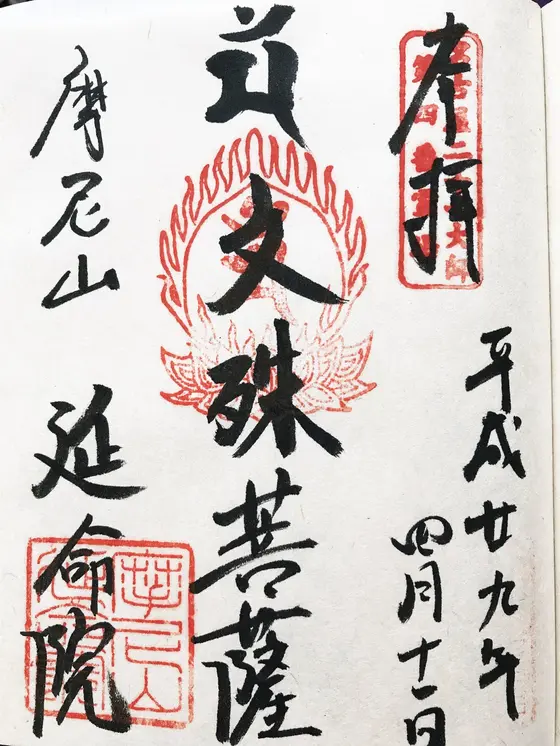 奉拝
平成廿九年
四月十一日
文殊菩薩
摩尼山
延命院
摩尼山